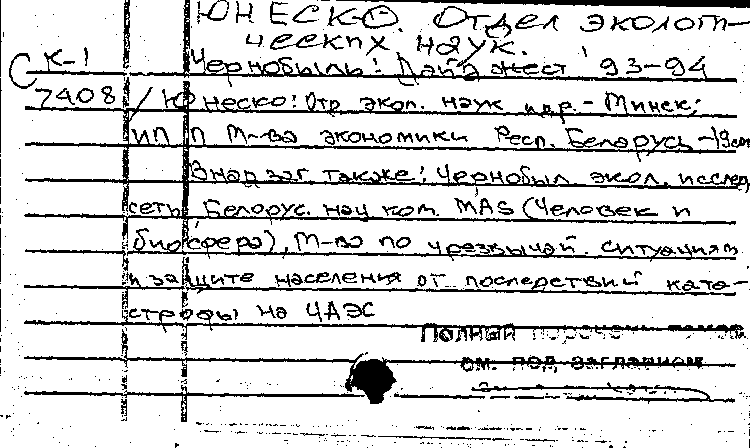 ЮНЕСКО. Отдел экологи-
ческих наук.
К-1 Чернобыль: Дайджест '93-94
С 7408 / Юнеско: Отд. экол. наук и др. - Минск:
ИПП М-ва экономики Респ. Беларусь, -19см
В над заг. также: Чернобыл. экол. исслед.
сеть, Белорус. нац ком. MAB (Человек и
биосфера), М-во по чрезвычай. ситуациям
и защите населения от последствий ката-
строфы на ЧАЭС
Полный перечень томов
см. под заглавием